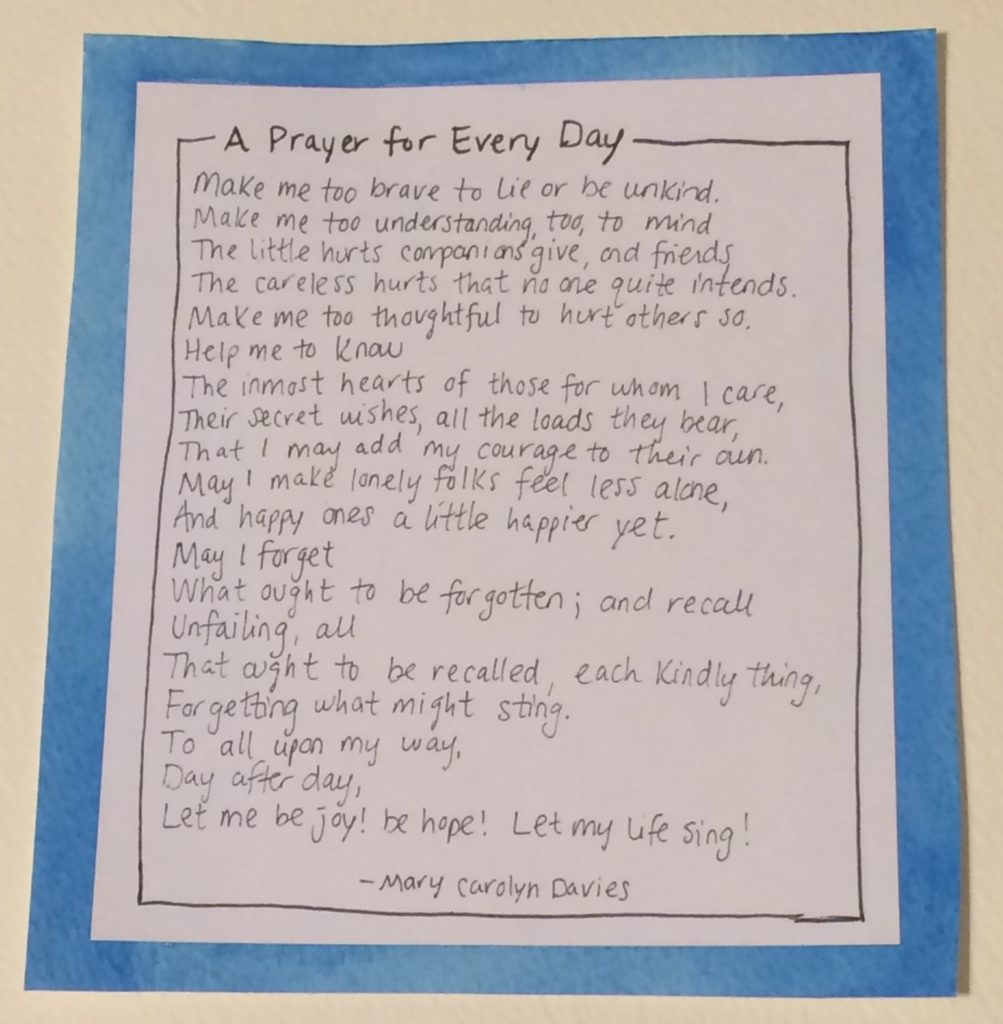 A Prayer for Every Day
Make me too brave to lie or be unkind.
Make me too understanding, too, to mind
The little hurts companions give, and friends,
The careless hurts that no one quite intends.
Make me too thoughtful to hurt others so.
Help me to know
The inmost hearts of those for whom I care,
Their secret wishes, all the loads they bear,
That I may add my courage to their own.
May I make lonely folks feel less alone,
And happy ones a little happier yet.
May I forget
What ought to be forgotten; and recall
Unfailing, all
That ought to be recalled, each kindly thing,
Forgetting what might sting.
To all upon my way,
Day after day,
Let me be joy! be hope! Let my life sing!
-Mary Carolyn Davies